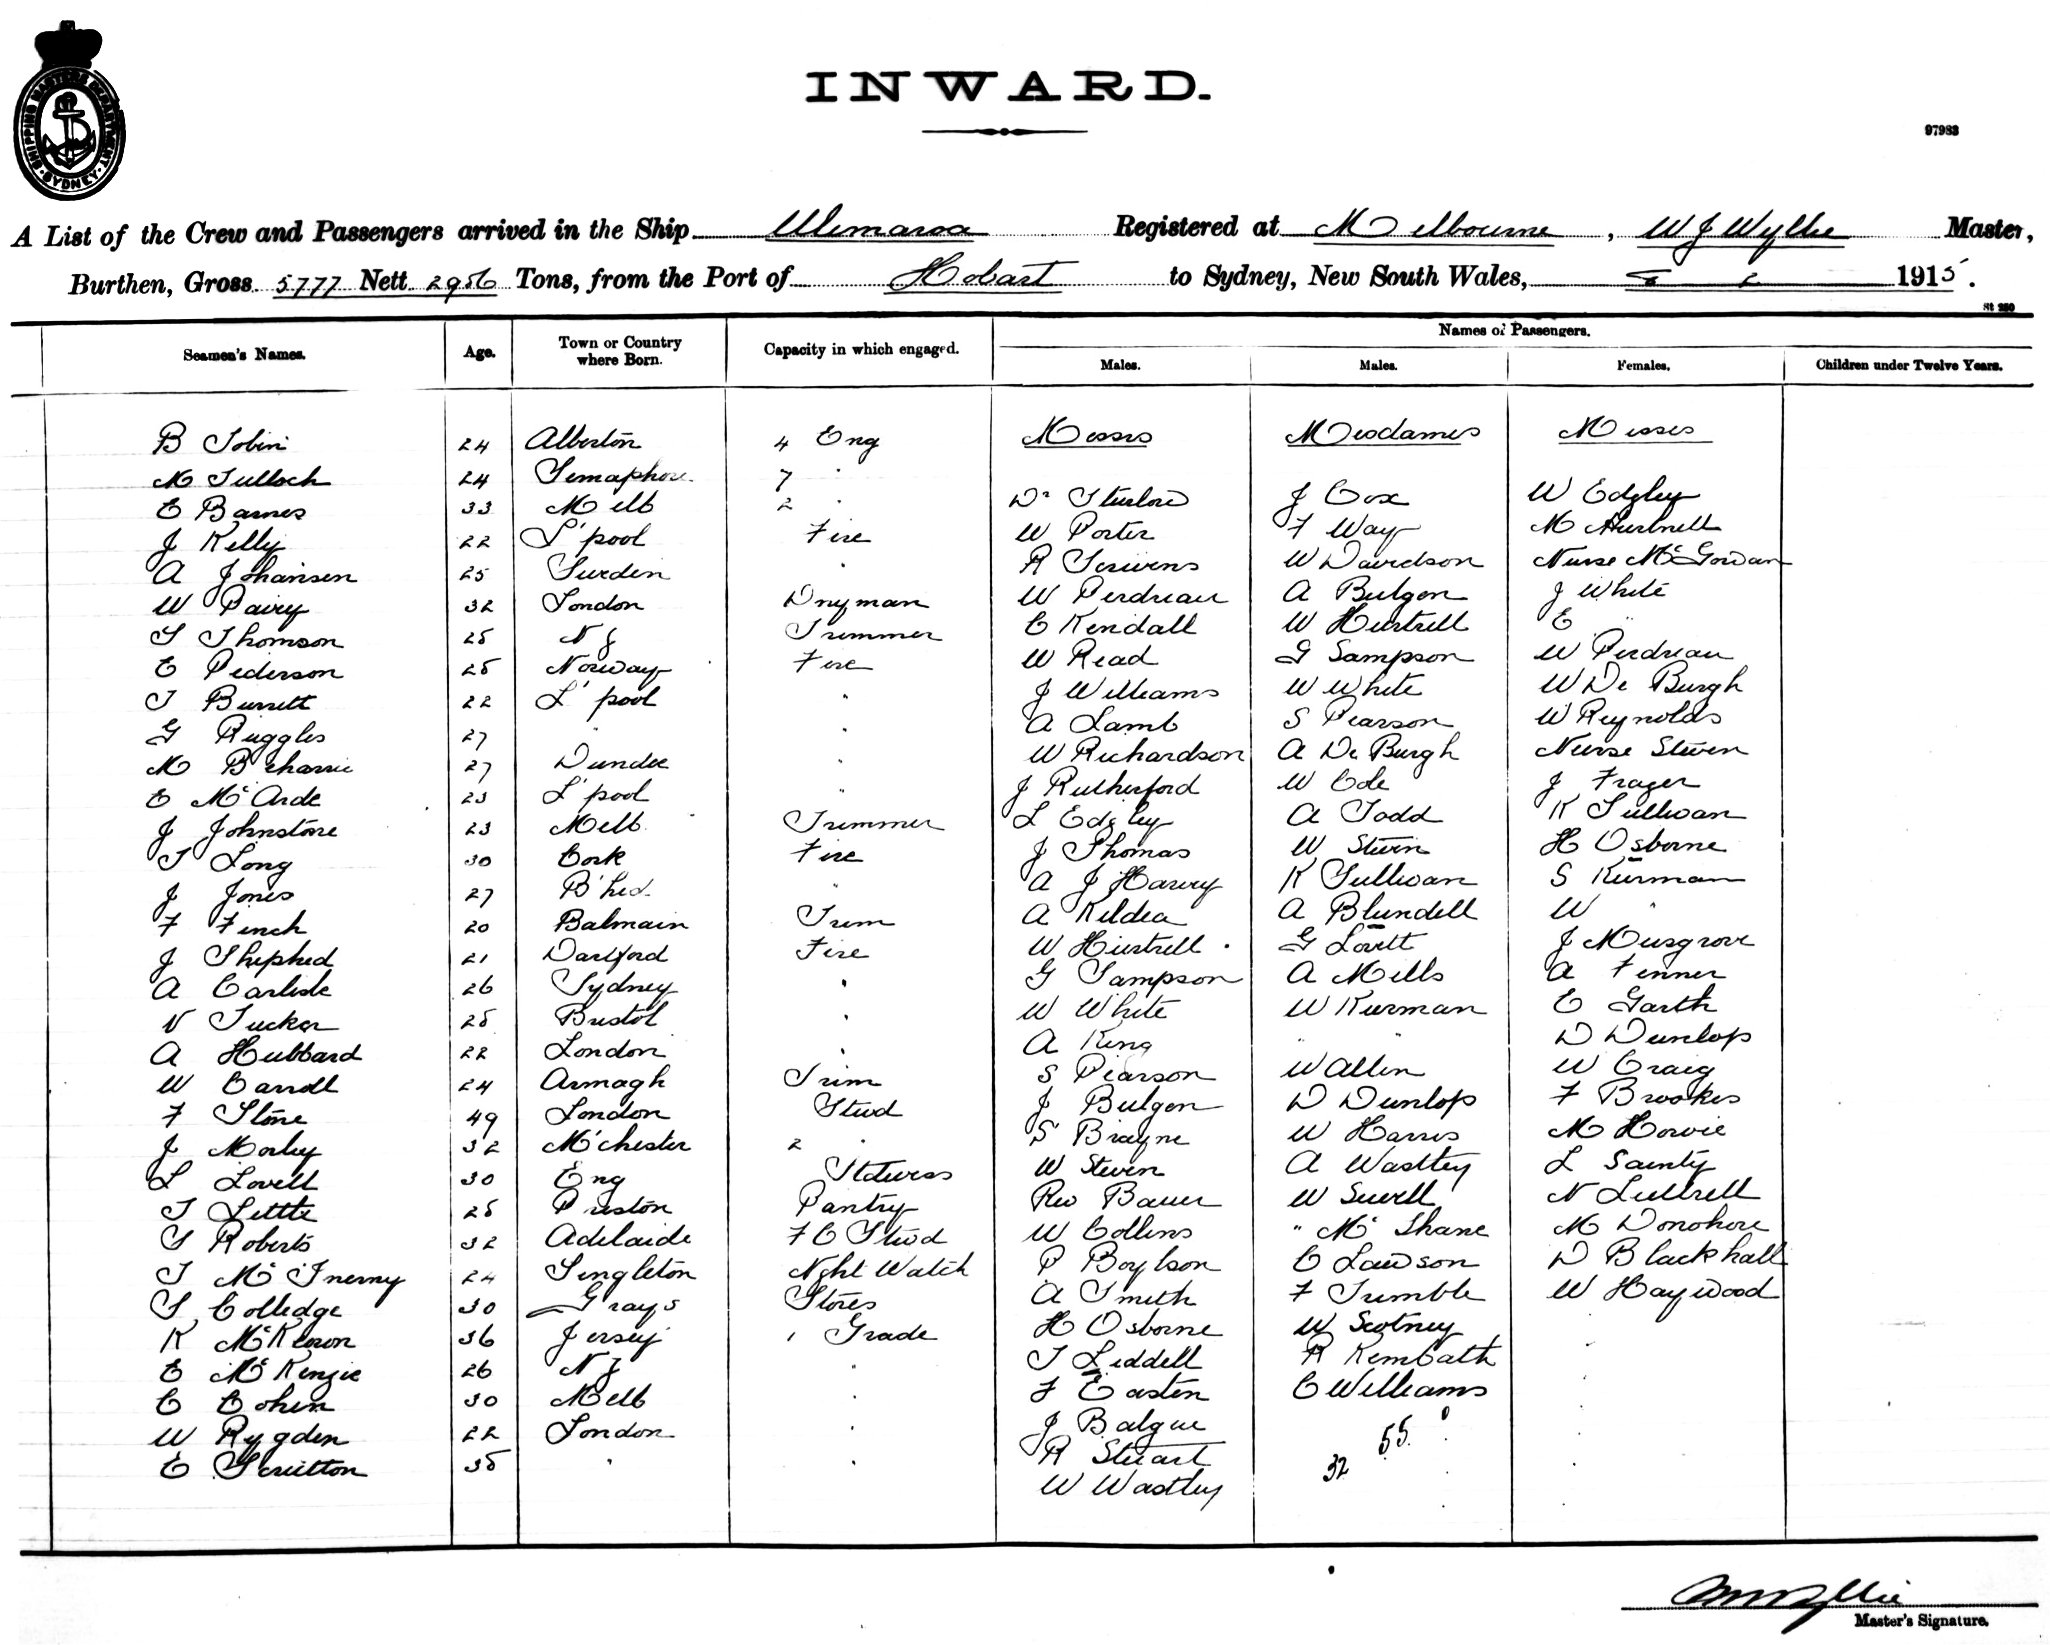 SHIPPING MASTERS DEPARTMENT. SYDNEY.
INWARD.
97983
A List of the Crew and Passengers arrived in the Ship Ulimaroa Registered at Melbourne, W J Wyllie Master,
Burthen, Gross 5777 Nett 2956 Tons, from the Port of Hobart to Sydney, New South Wales, 1915.
St 250
Names of Passengers.
Seamen's Names. Age. Town or Country where Born. Capacity in which engaged. Males. Males. Females. Children under Twelve Years.
B Tobin 24 Alberton 4 Eng Messrs Mesdames Misses
M Tulloch 24 Semaphore 7 "
E Barnes 33 Melb 2 " Dr J Cox W Edgley
J Kelly 22 L'pool Fire W Porter F Way M
A Johansen 25 Sweden " R Scrivens W Davidson Nurse McGowan
W Pavey 32 London Dnyman W Perdriau A Bulgen J White
S Thomson 25 N Z Trimmer C Kendall W E "
E Pederson 25 Norway Fire W Read G Sampson W Perdriau
T Burrett 22 L'pool " J Williams W White W De Burgh
G Ruggles 27 " " A Lamb S Pearson W Reynolds
M Beharrie 27 Dundee " W Richardson A De Burgh Nurse Steven
E McArde 23 L'pool " J Rutherford W Cole J Frazer
J Johnstone 23 Melb Trimmer L Edgley A Todd K Sullivan
T Long 30 Cork Fire J Thomas W Steven H Osborne
J Jones 27 B'hed " A J Harvey K Sullivan S Kurman
F Finch 20 Balmain Trim A Kildea A Blundell W "
J Shephed 21 Dartford Fire W G Lovett J Musgrove
A Carlisle 26 Sydney " G Sampson A Mills A Fenner
V Tucker 25 Bristol " W White W Kurman E Garth
A Hubbard 22 London " A King " " D Dunlop
W Carroll 24 Armagh Trim S Pearson W Allen W Craig
F Stone 49 London Stwd J Bulgen D Dunlop F Brookes
J Morley 32 M'chester 2 " S Brayne W Harris M Howie
L Lovell 30 Eng Stdwess W Steven A Wastley L Sainty
T Little 25 Preston Pantry Rev Bauer W Sewell N Luttrell
S Roberts 32 Adelaide F C Stwd W Collins " McShane M Donohoe
T McInerny 24 Singleton Nght Watch P Boylson C Lawson D Blackhall
S Colledge 30 Grays Stores A Smith F Trumble W Haywood
K McKeown 36 Jersey 1 Grade H Osborne W Scotney
E McKenzie 26 N Z " T Liddell R Kembath
C Cohen 30 Melb " F Easten C Williams
W Rygden 22 London " J Balgue 55
E Scrutton 35 " " R Stuart 32
W Wastley
W J Wyllie
Master's Signature.